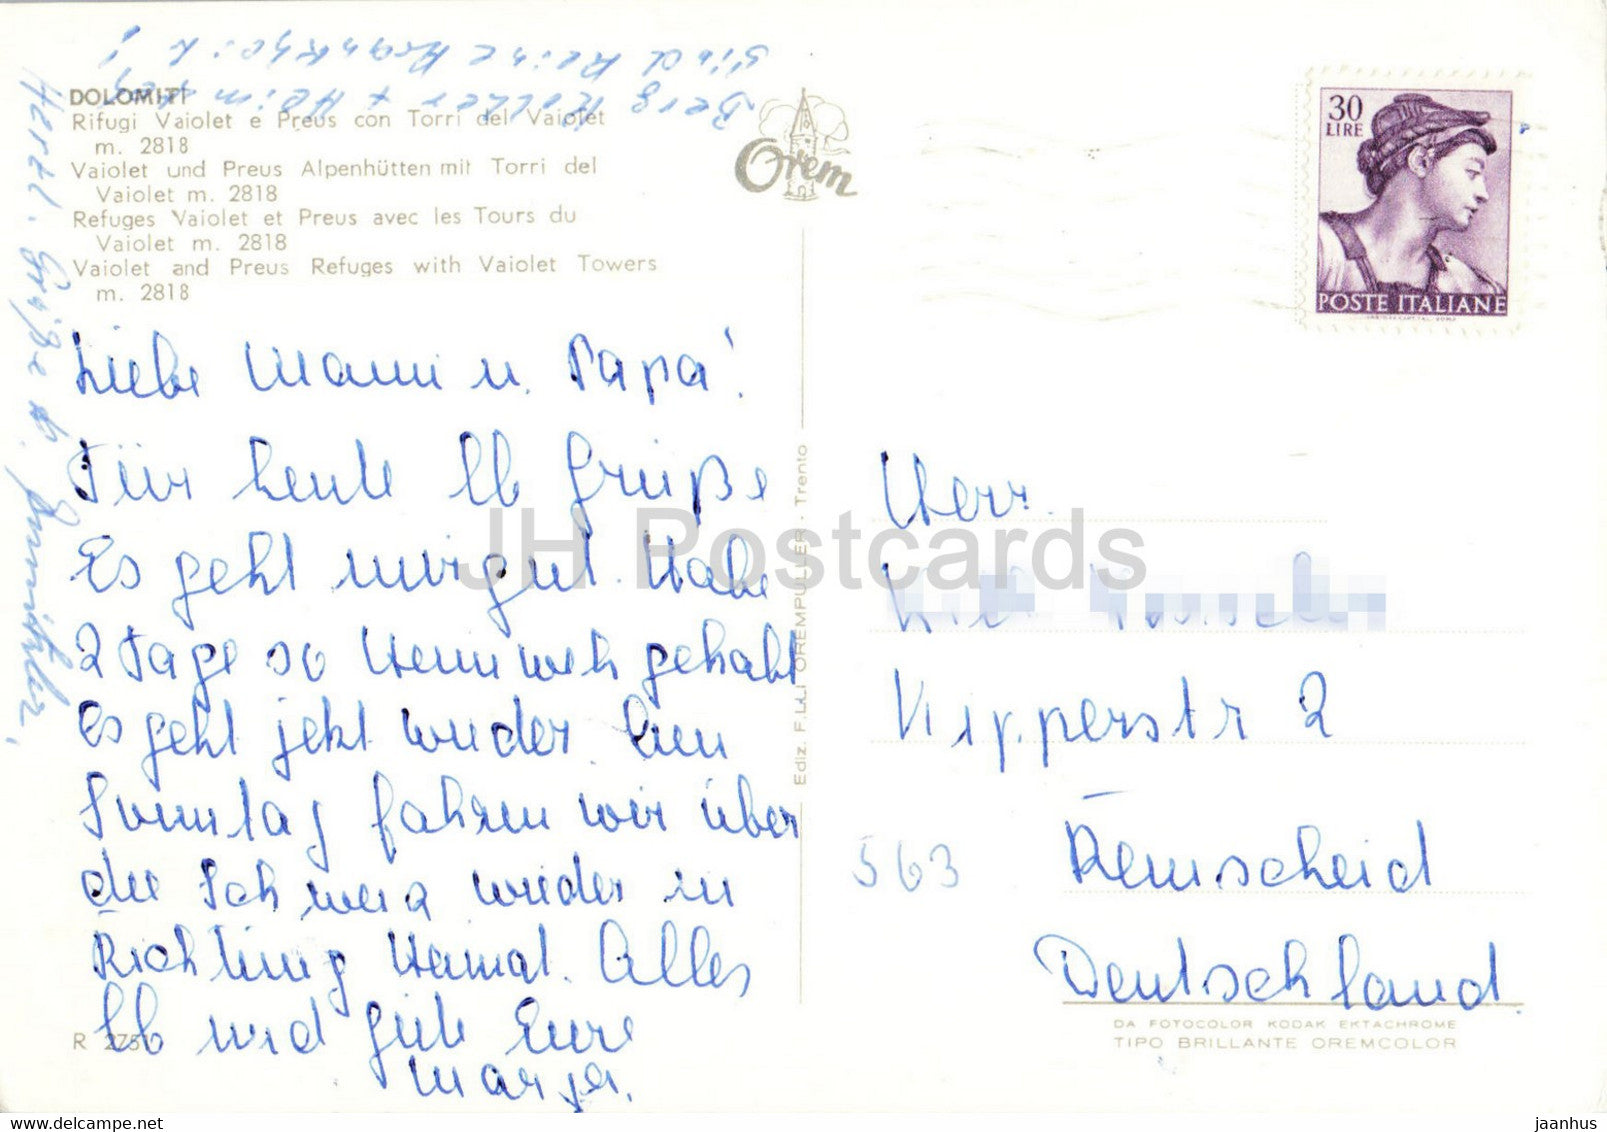 sind keine Krankheit!
Berg Koller + Heimweh
DOLOMITI
Rifugi Vaiolet e Preus con Torri del Vaiolet
m. 2818
Vaiolet und Preus Alpenhütten mit Torri del
Vaiolet m. 2818
Refuges Vaiolet et Preus avec les Tours du
Vaiolet m. 2818
Vaiolet and Preus Refuges with Vaiolet Towers
m. 2818
Orem
30
LIRE
POSTE ITALIANE
Herzl. Grüße
Liebe Mami u. Papa!
Für heute lb Grüße
Es geht mir gut. Habe
2 Tage so Heimweh gehabt
Es geht jetzt wieder. Am
Sonntag fahren wir über
die Schweiz wieder in
Richtung Heimat. Alles
lb und gute Eure
Ediz. F.LLI OREMPULLER - Trento
R 2750
Herr.
Kipperstr 2
563
Remscheid
Deutschland
DA FOTOCOLOR KODAK EKTACHROME
TIPO BRILLANTE OREMCOLOR
JH Postcards
www.delcampe.net
jaanhus